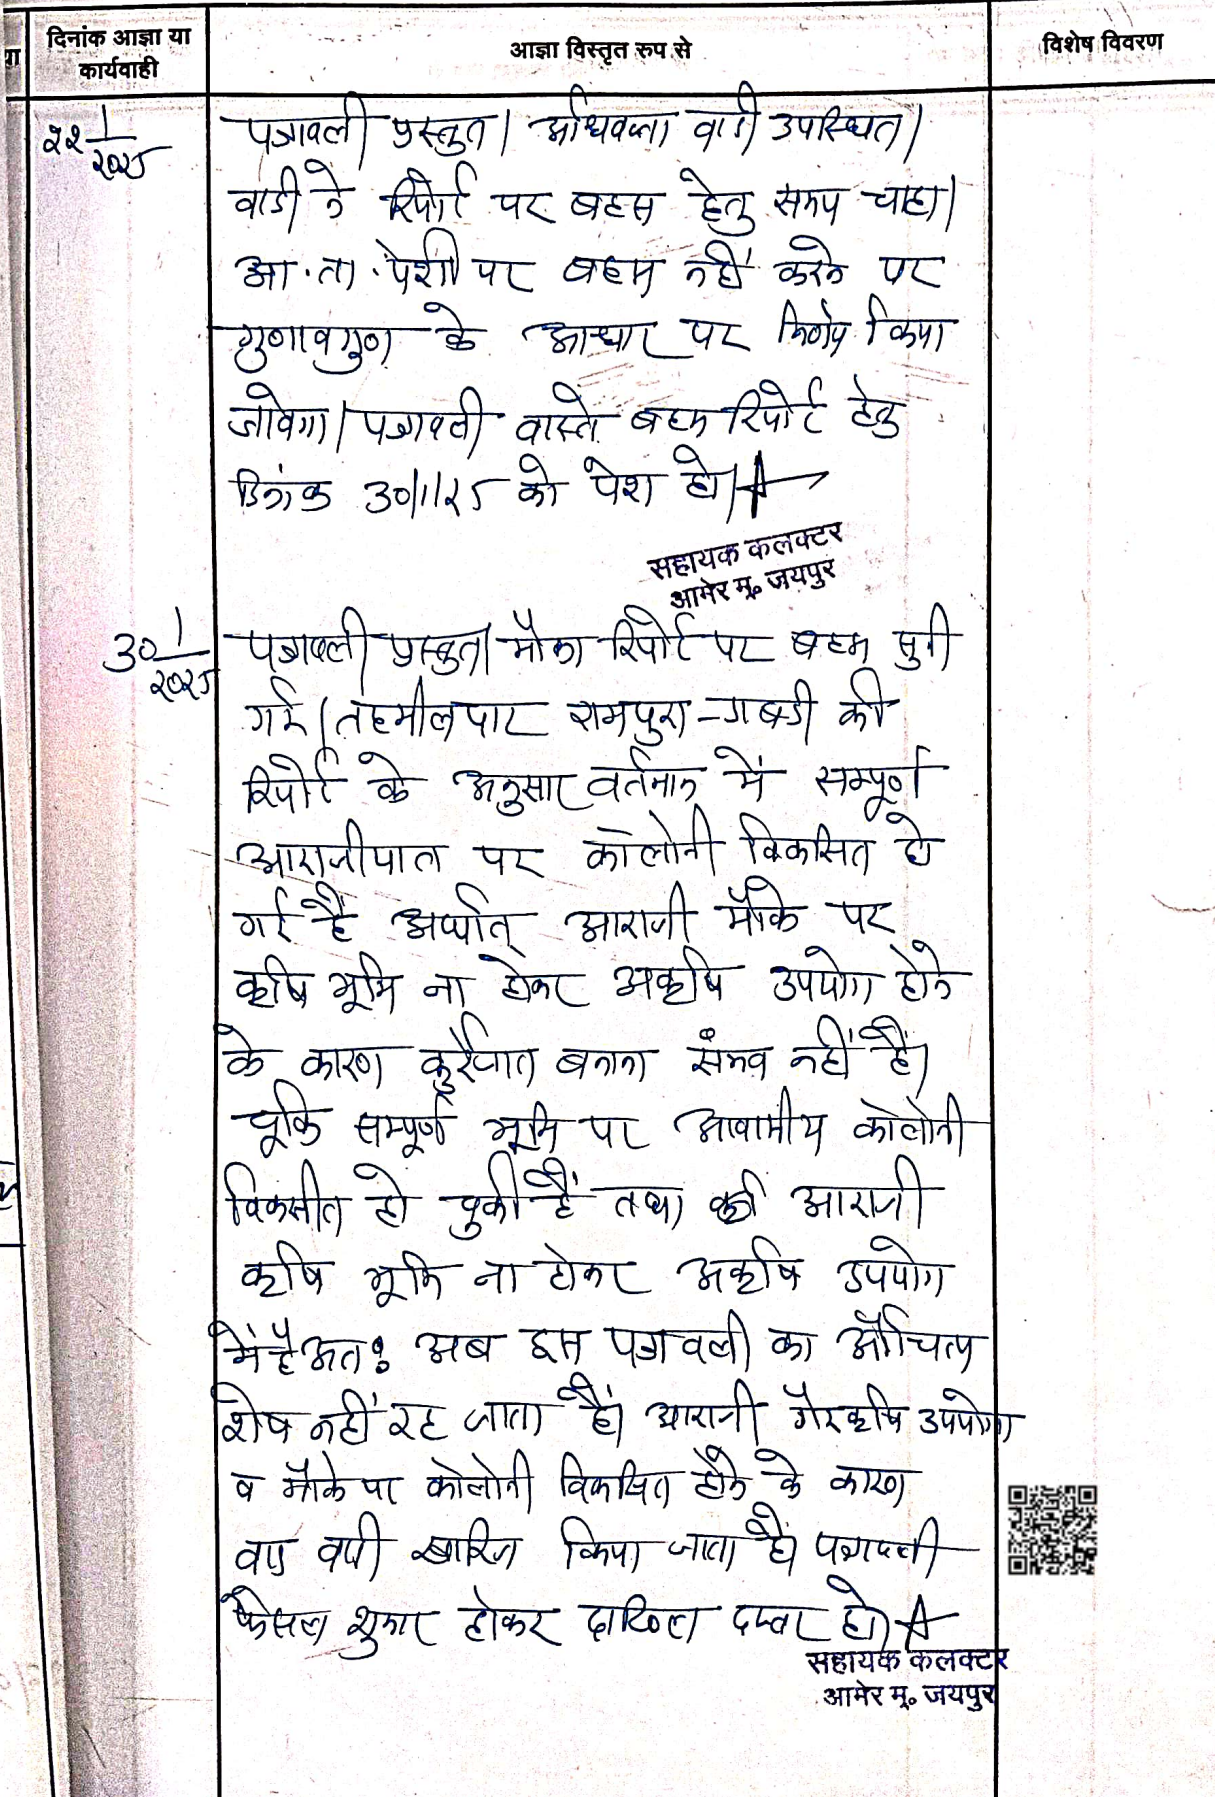 दिनांक आज्ञा या
कार्यवाही
आज्ञा विस्तृत रुप से
विशेष विवरण
22/1/2025
पत्रावली प्रस्तुत। अधिवक्ता वादी उपस्थित।
वादी ने रिपोर्ट पर बहस हेतु समय चाहा।
आ.ता.पेशी पर बहस नहीं करने पर
गुणावगुण के आधार पर निर्णय किया
जावेगा। पत्रावली वास्ते बहस रिपोर्ट हेतु
दिनांक 30/1/25 को पेश हो।
सहायक कलक्टर
आमेर मु. जयपुर
30/1/2025
पत्रावली प्रस्तुत। मौका रिपोर्ट पर बहस सुनी
गई। तहसीलदार रामपुरा-डाबडी की
रिपोर्ट के अनुसार वर्तमान में सम्पूर्ण
आराजीयात पर कॉलोनी विकसित हो
गई है अर्थात् आराजी मौके पर
कृषि भूमि ना होकर अकृषि उपयोग होने
के कारण कुर्रेजात बनाना संभव नहीं है।
चूकि सम्पूर्ण भूमि पर आवासीय कोलोनी
विकसीत हो चुकी हैं तथा आराजी
कृषि भूमि ना होकर अकृषि उपयोग
में है अतः अब इस पत्रावली का औचित्य
शेष नहीं रह जाता है। आराजी गैरकृषि उपयोग
व मौके पर कोलोनी विकसित होने के कारण
वाद वादी खारिज किया जाता है। पत्रावली
फैसल शुमार होकर दाखिल दफ्तर हो।
सहायक कलक्टर
आमेर मु. जयपुर